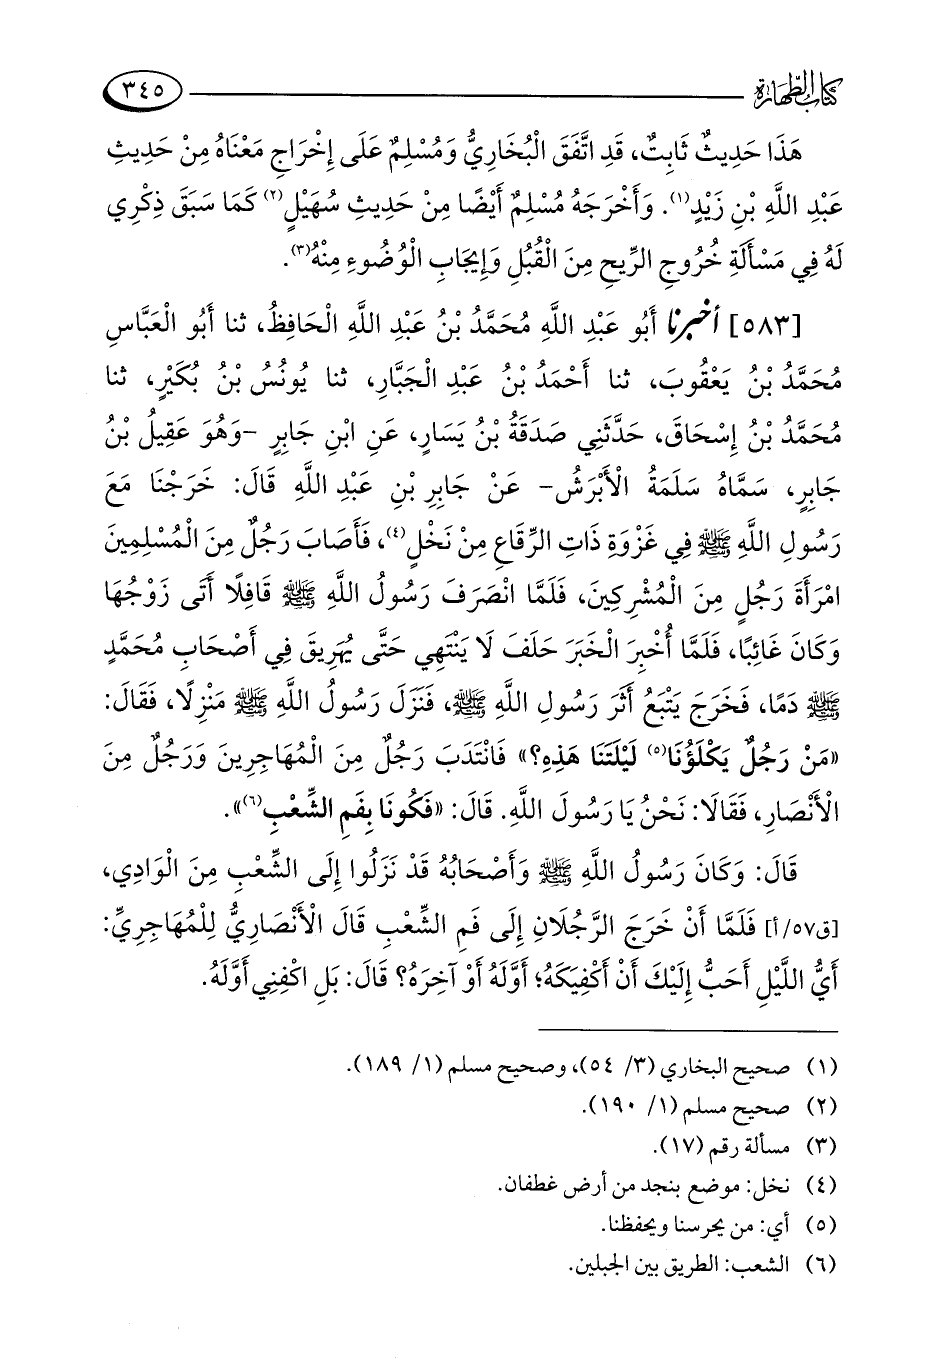 كتاب الطهارة ٣٤٥
هَذَا حَدِيثٌ ثَابِتٌ، قَدِ اتَّفَقَ الْبُخَارِيُّ وَمُسْلِمٌ عَلَى إِخْرَاجِ مَعْنَاهُ مِنْ حَدِيثِ
عَبْدِ اللَّهِ بْنِ زَيْدٍ(١). وَأَخْرَجَهُ مُسْلِمٌ أَيْضًا مِنْ حَدِيثِ سُهَيْلٍ(٢) كَمَا سَبَقَ ذِكْرِي
لَهُ فِي مَسْأَلَةِ خُرُوجِ الرِّيحِ مِنَ الْقُبُلِ وَإِيجَابِ الْوُضُوءِ مِنْهُ(٣).
[٥٨٣] أخبرنا أَبُو عَبْدِ اللَّهِ مُحَمَّدُ بْنُ عَبْدِ اللَّهِ الْحَافِظُ، ثنا أَبُو الْعَبَّاسِ
مُحَمَّدُ بْنُ يَعْقُوبَ، ثنا أَحْمَدُ بْنُ عَبْدِ الْجَبَّارِ، ثنا يُونُسُ بْنُ بُكَيْرٍ، ثنا
مُحَمَّدُ بْنُ إِسْحَاقَ، حَدَّثَنِي صَدَقَةُ بْنُ يَسَارٍ، عَنِ ابْنِ جَابِرٍ -وَهُوَ عَقِيلُ بْنُ
جَابِرٍ، سَمَّاهُ سَلَمَةُ الْأَبْرَشُ- عَنْ جَابِرِ بْنِ عَبْدِ اللَّهِ قَالَ: خَرَجْنَا مَعَ
رَسُولِ اللَّهِ ﷺ فِي غَزْوَةِ ذَاتِ الرِّقَاعِ مِنْ نَخْلٍ(٤)، فَأَصَابَ رَجُلٌ مِنَ الْمُسْلِمِينَ
امْرَأَةَ رَجُلٍ مِنَ الْمُشْرِكِينَ، فَلَمَّا انْصَرَفَ رَسُولُ اللَّهِ ﷺ قَافِلًا أَتَى زَوْجُهَا
وَكَانَ غَائِبًا، فَلَمَّا أُخْبِرَ الْخَبَرَ حَلَفَ لَا يَنْتَهِي حَتَّى يُهَرِيقَ فِي أَصْحَابِ مُحَمَّدٍ
ﷺ دَمًا، فَخَرَجَ يَتْبَعُ أَثَرَ رَسُولِ اللَّهِ ﷺ، فَنَزَلَ رَسُولُ اللَّهِ ﷺ مَنْزِلًا، فَقَالَ:
«مَنْ رَجُلٌ يَكْلَؤُنَا(٥) لَيْلَتَنَا هَذِهِ؟» فَانْتَدَبَ رَجُلٌ مِنَ الْمُهَاجِرِينَ وَرَجُلٌ مِنَ
الْأَنْصَارِ، فَقَالَا: نَحْنُ يَا رَسُولَ اللَّهِ. قَالَ: «فَكُونَا بِفَمِ الشِّعْبِ(٦)».
قَالَ: وَكَانَ رَسُولُ اللَّهِ ﷺ وَأَصْحَابُهُ قَدْ نَزَلُوا إِلَى الشِّعْبِ مِنَ الْوَادِي،
[ق٥٧/أ] فَلَمَّا أَنْ خَرَجَ الرَّجُلَانِ إِلَى فَمِ الشِّعْبِ قَالَ الْأَنْصَارِيُّ لِلْمُهَاجِرِيِّ:
أَيُّ اللَّيْلِ أَحَبُّ إِلَيْكَ أَنْ أَكْفِيَكَهُ؛ أَوَّلَهُ أَوْ آخِرَهُ؟ قَالَ: بَلِ اكْفِنِي أَوَّلَهُ.
(١) صحيح البخاري (٣/ ٥٤)، وصحيح مسلم (١/ ١٨٩).
(٢) صحيح مسلم (١/ ١٩٠).
(٣) مسألة رقم (١٧).
(٤) نخل: موضع بنجد من أرض غطفان.
(٥) أي: من يحرسنا ويحفظنا.
(٦) الشعب: الطريق بين الجبلين.